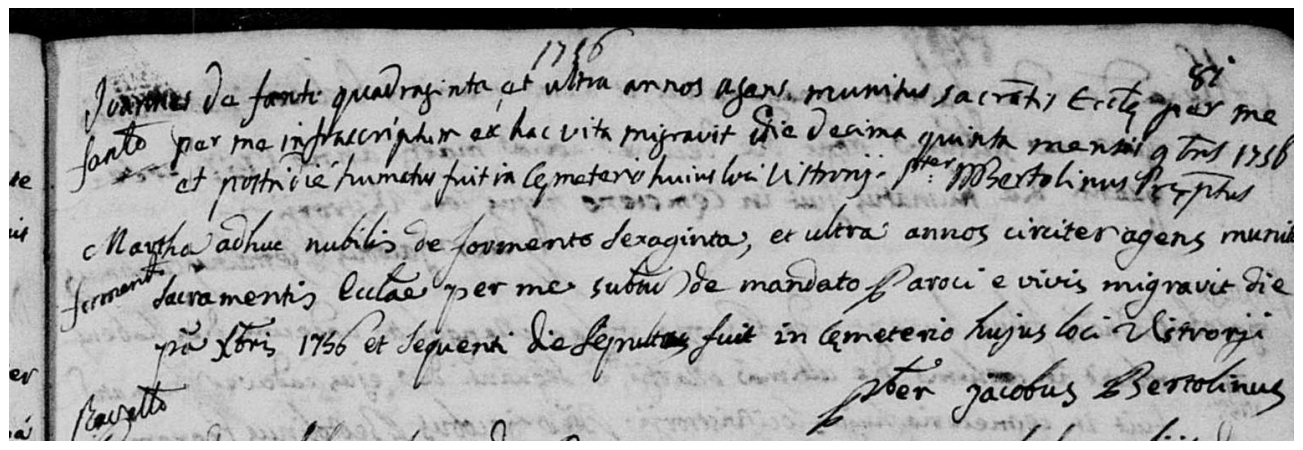 1756
81
Joannes de fanti quadraginta, et ultra annos agens, munitus sacrātis Ecctę per me
fanto per me infrascriptum ex hac vita migravit die decima quinta mensis 9bris 1756
et postridie humatus fuit in Cęmeterio huius loci Vistrorij. Pter Bertolinus
Martha adhuc nubilis de formento sexaginta, et ultra annos circiter agens munit
forment sacramentis Ecclae per me subtū de mandato Paroci e vivis migravit die
pā Xbris 1756 et sequenti die sepultus fuit in Cęmeterio hujus loci Vistrorji
Pter Jacobus Bertolinus
Ravetto